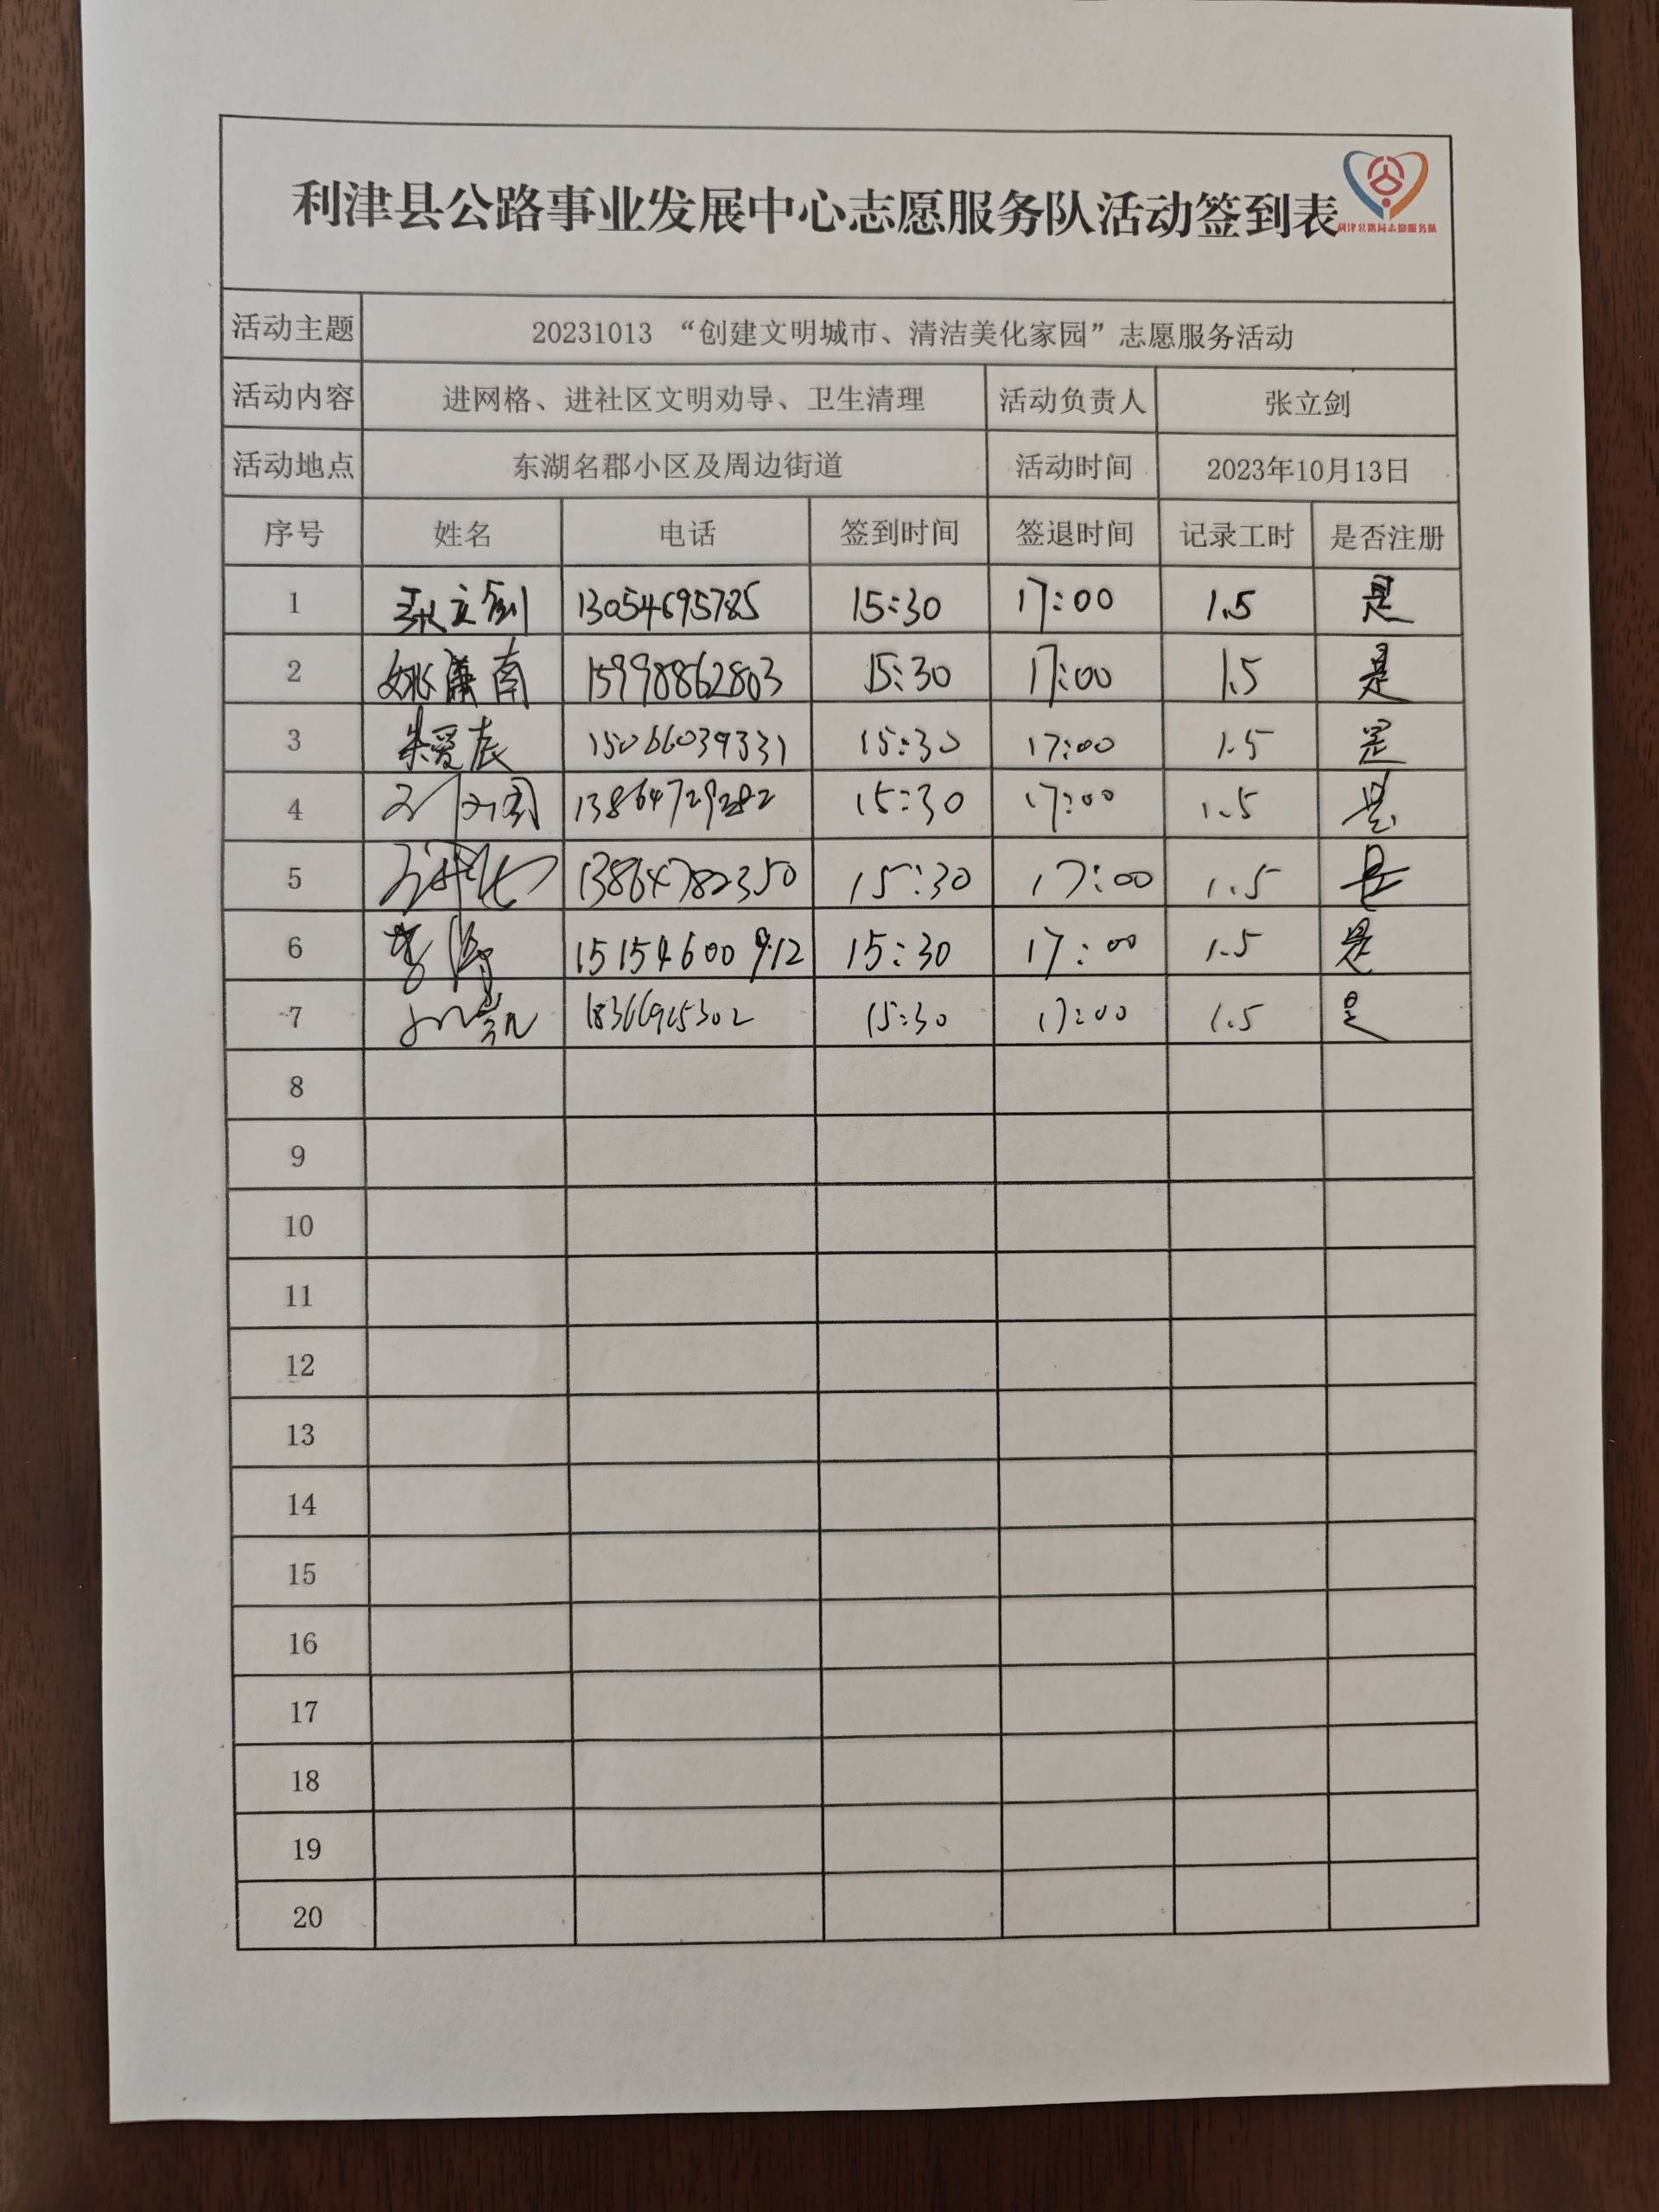 利津县公路事业发展中心志愿服务队活动签到表
利津公路局志愿服务队
活动主题 20231013 “创建文明城市、清洁美化家园”志愿服务活动
活动内容 进网格、进社区文明劝导、卫生清理 活动负责人 张立剑
活动地点 东湖名郡小区及周边街道 活动时间 2023年10月13日
序号 姓名 电话 签到时间 签退时间 记录工时 是否注册
1 张立剑 13054695785 15:30 17:00 1.5 是
2 15998862803 15:30 17:00 1.5 是
3 朱爱辰 15066039331 15:30 17:00 1.5 是
4 13864729282 15:30 17:00 1.5 是
5 13864782350 15:30 17:00 1.5 是
6 李涛 15154600912 15:30 17:00 1.5 是
7 15:30 17:00 1.5 是
8
9
10
11
12
13
14
15
16
17
18
19
20